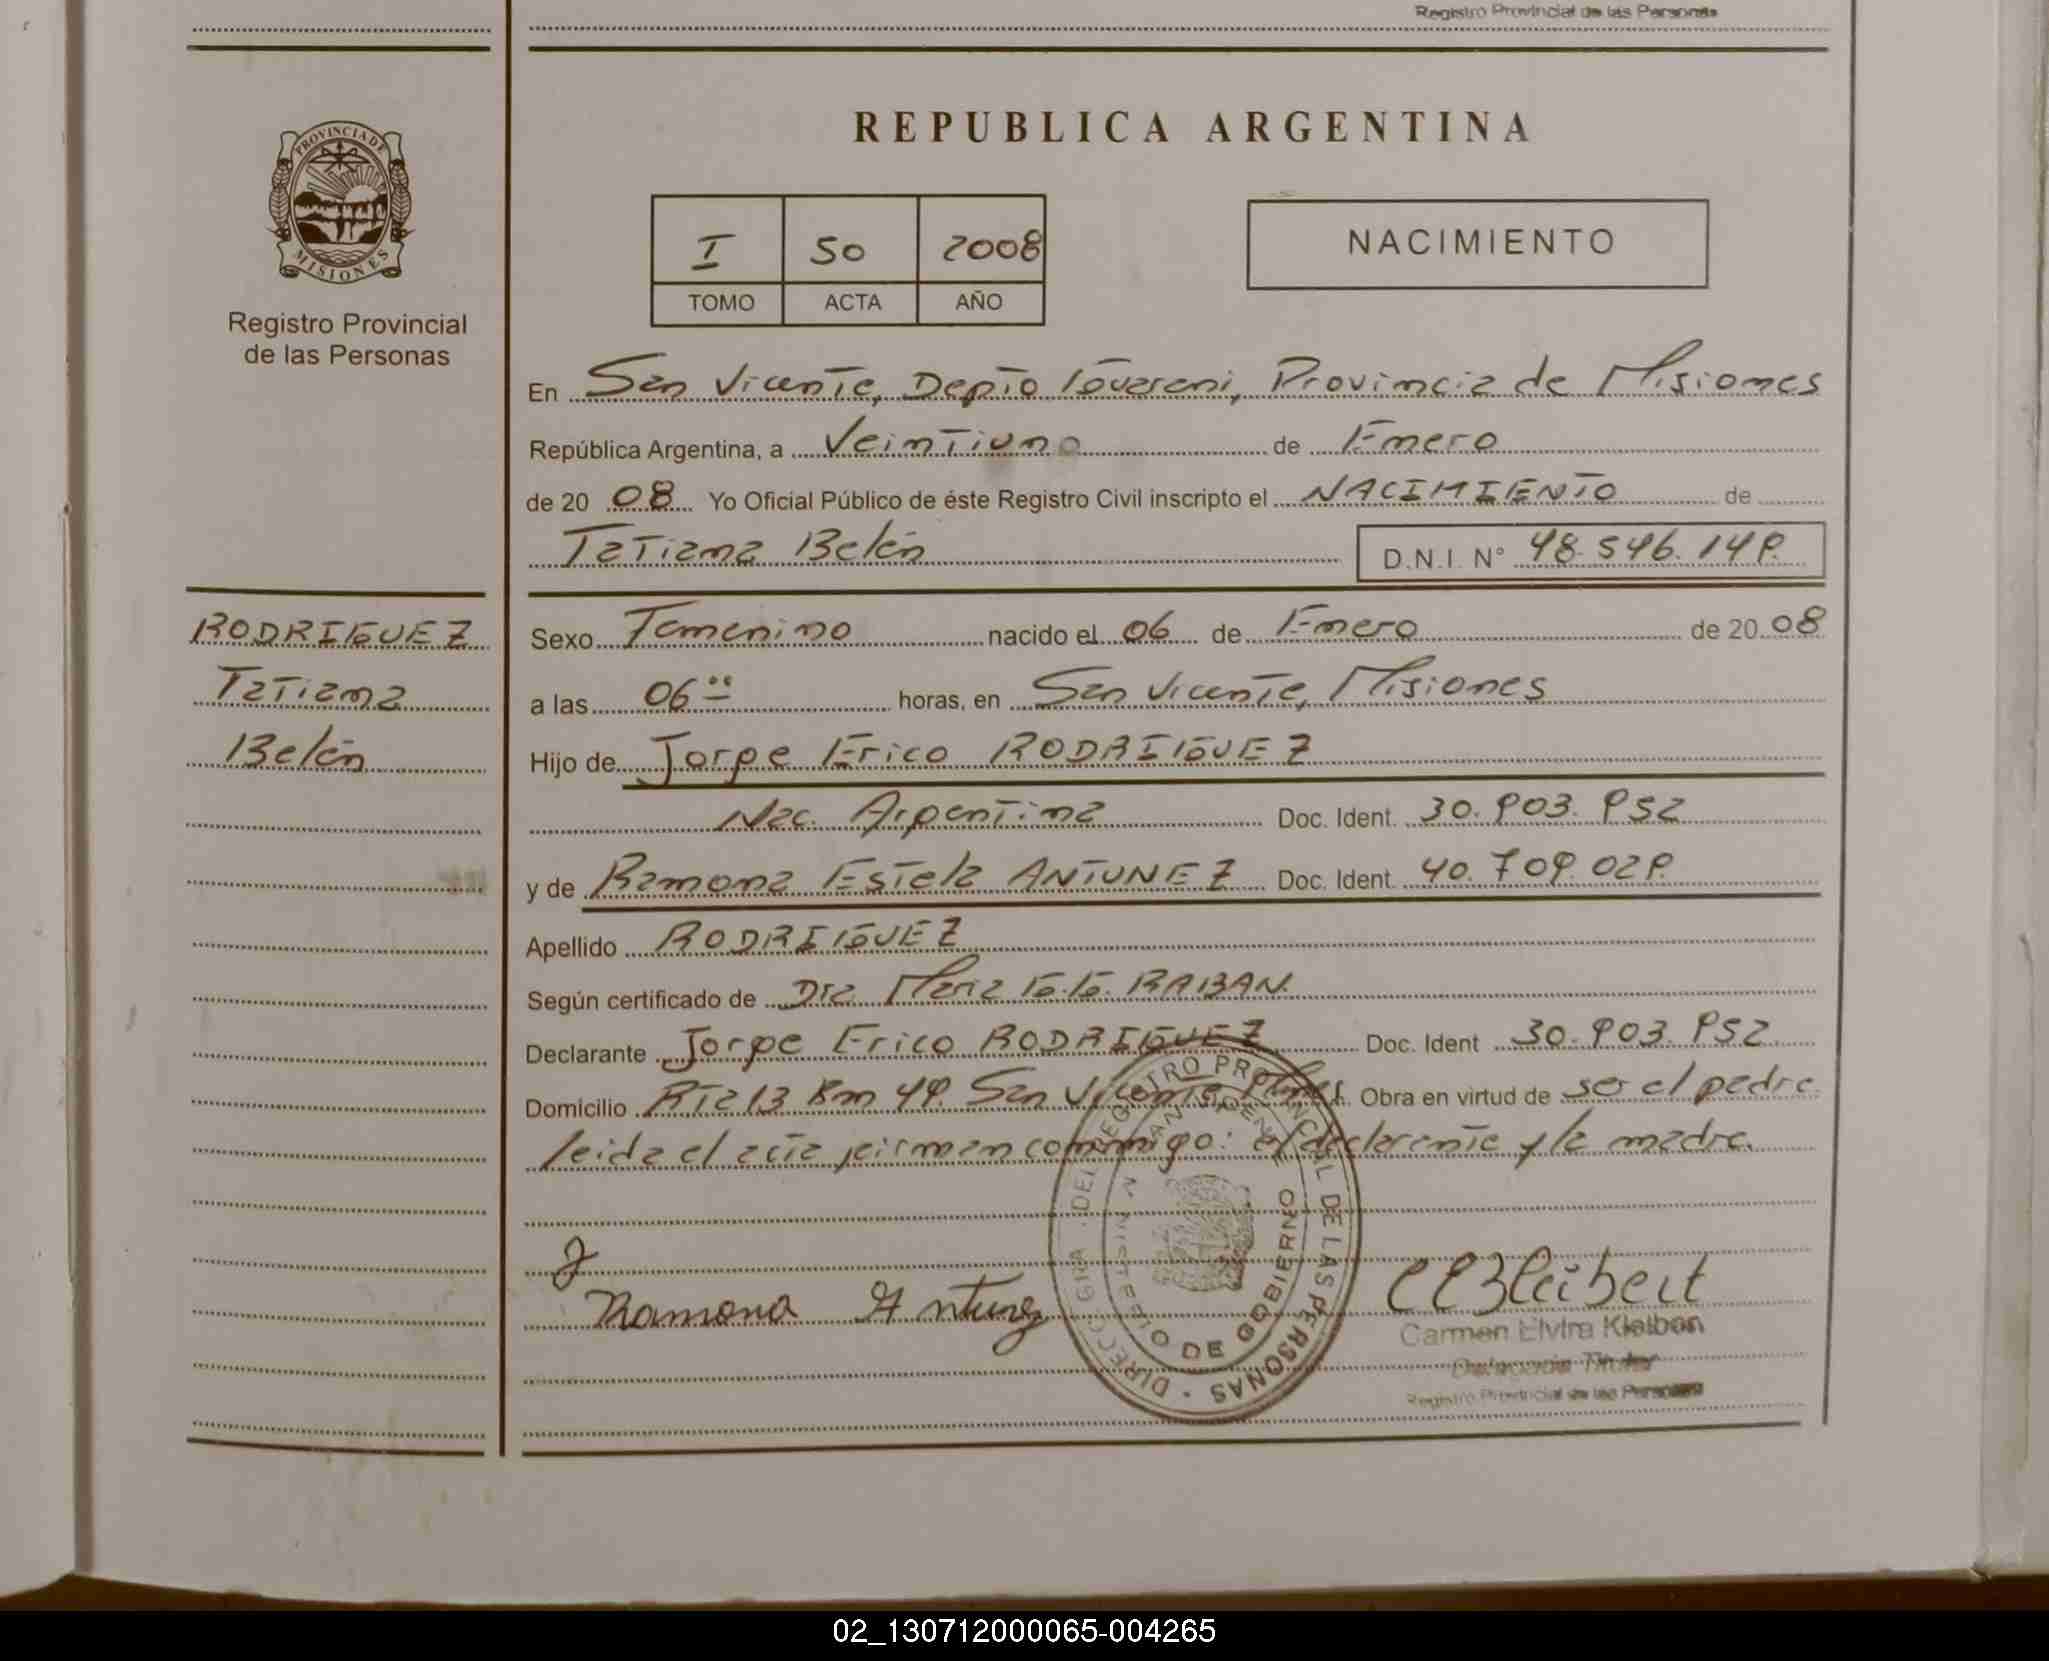 Registro Provincial de las Personas
PROVINCIA DE
MISIONES
Registro Provincial
de las Personas
REPUBLICA ARGENTINA
I 50 2008
TOMO ACTA AÑO
NACIMIENTO
En San Vicente, Depto Guarani, Provincia de Misiones
República Argentina, a Veintiuno de Enero
de 20 08 Yo Oficial Público de éste Registro Civil inscripto el NACIMIENTO de
Tatiana Belén D.N.I. N° 48.546.149.
RODRIGUEZ
Tatiana
Belén
Sexo Femenino nacido el 06 de Enero de 20 08
a las 06 00 horas, en San Vicente, Misiones
Hijo de Jorge Erico RODRIGUEZ
Nac. Argentina Doc. Ident. 30.903.952
y de Ramona Estela ANTUNEZ Doc. Ident. 40.709.029.
Apellido RODRIGUEZ
Según certificado de Dra Maria G.G. RABAN.
Declarante Jorge Erico RODRIGUEZ Doc. Ident 30.903.952
Domicilio Rta 13 Km 49. San Vicente, Mnes. Obra en virtud de ser el padre.
leida el acta firman conmigo: el declarante y la madre.
DIRECC. GRAL. DEL REGISTRO PROVINCIAL DE LAS PERSONAS
SAN VICENTE
MINISTERIO DE GOBIERNO
Ramona Antunez
Carmen Elvira
Delegada Titular
Registro Provincial de las Personas
02_130712000065-004265